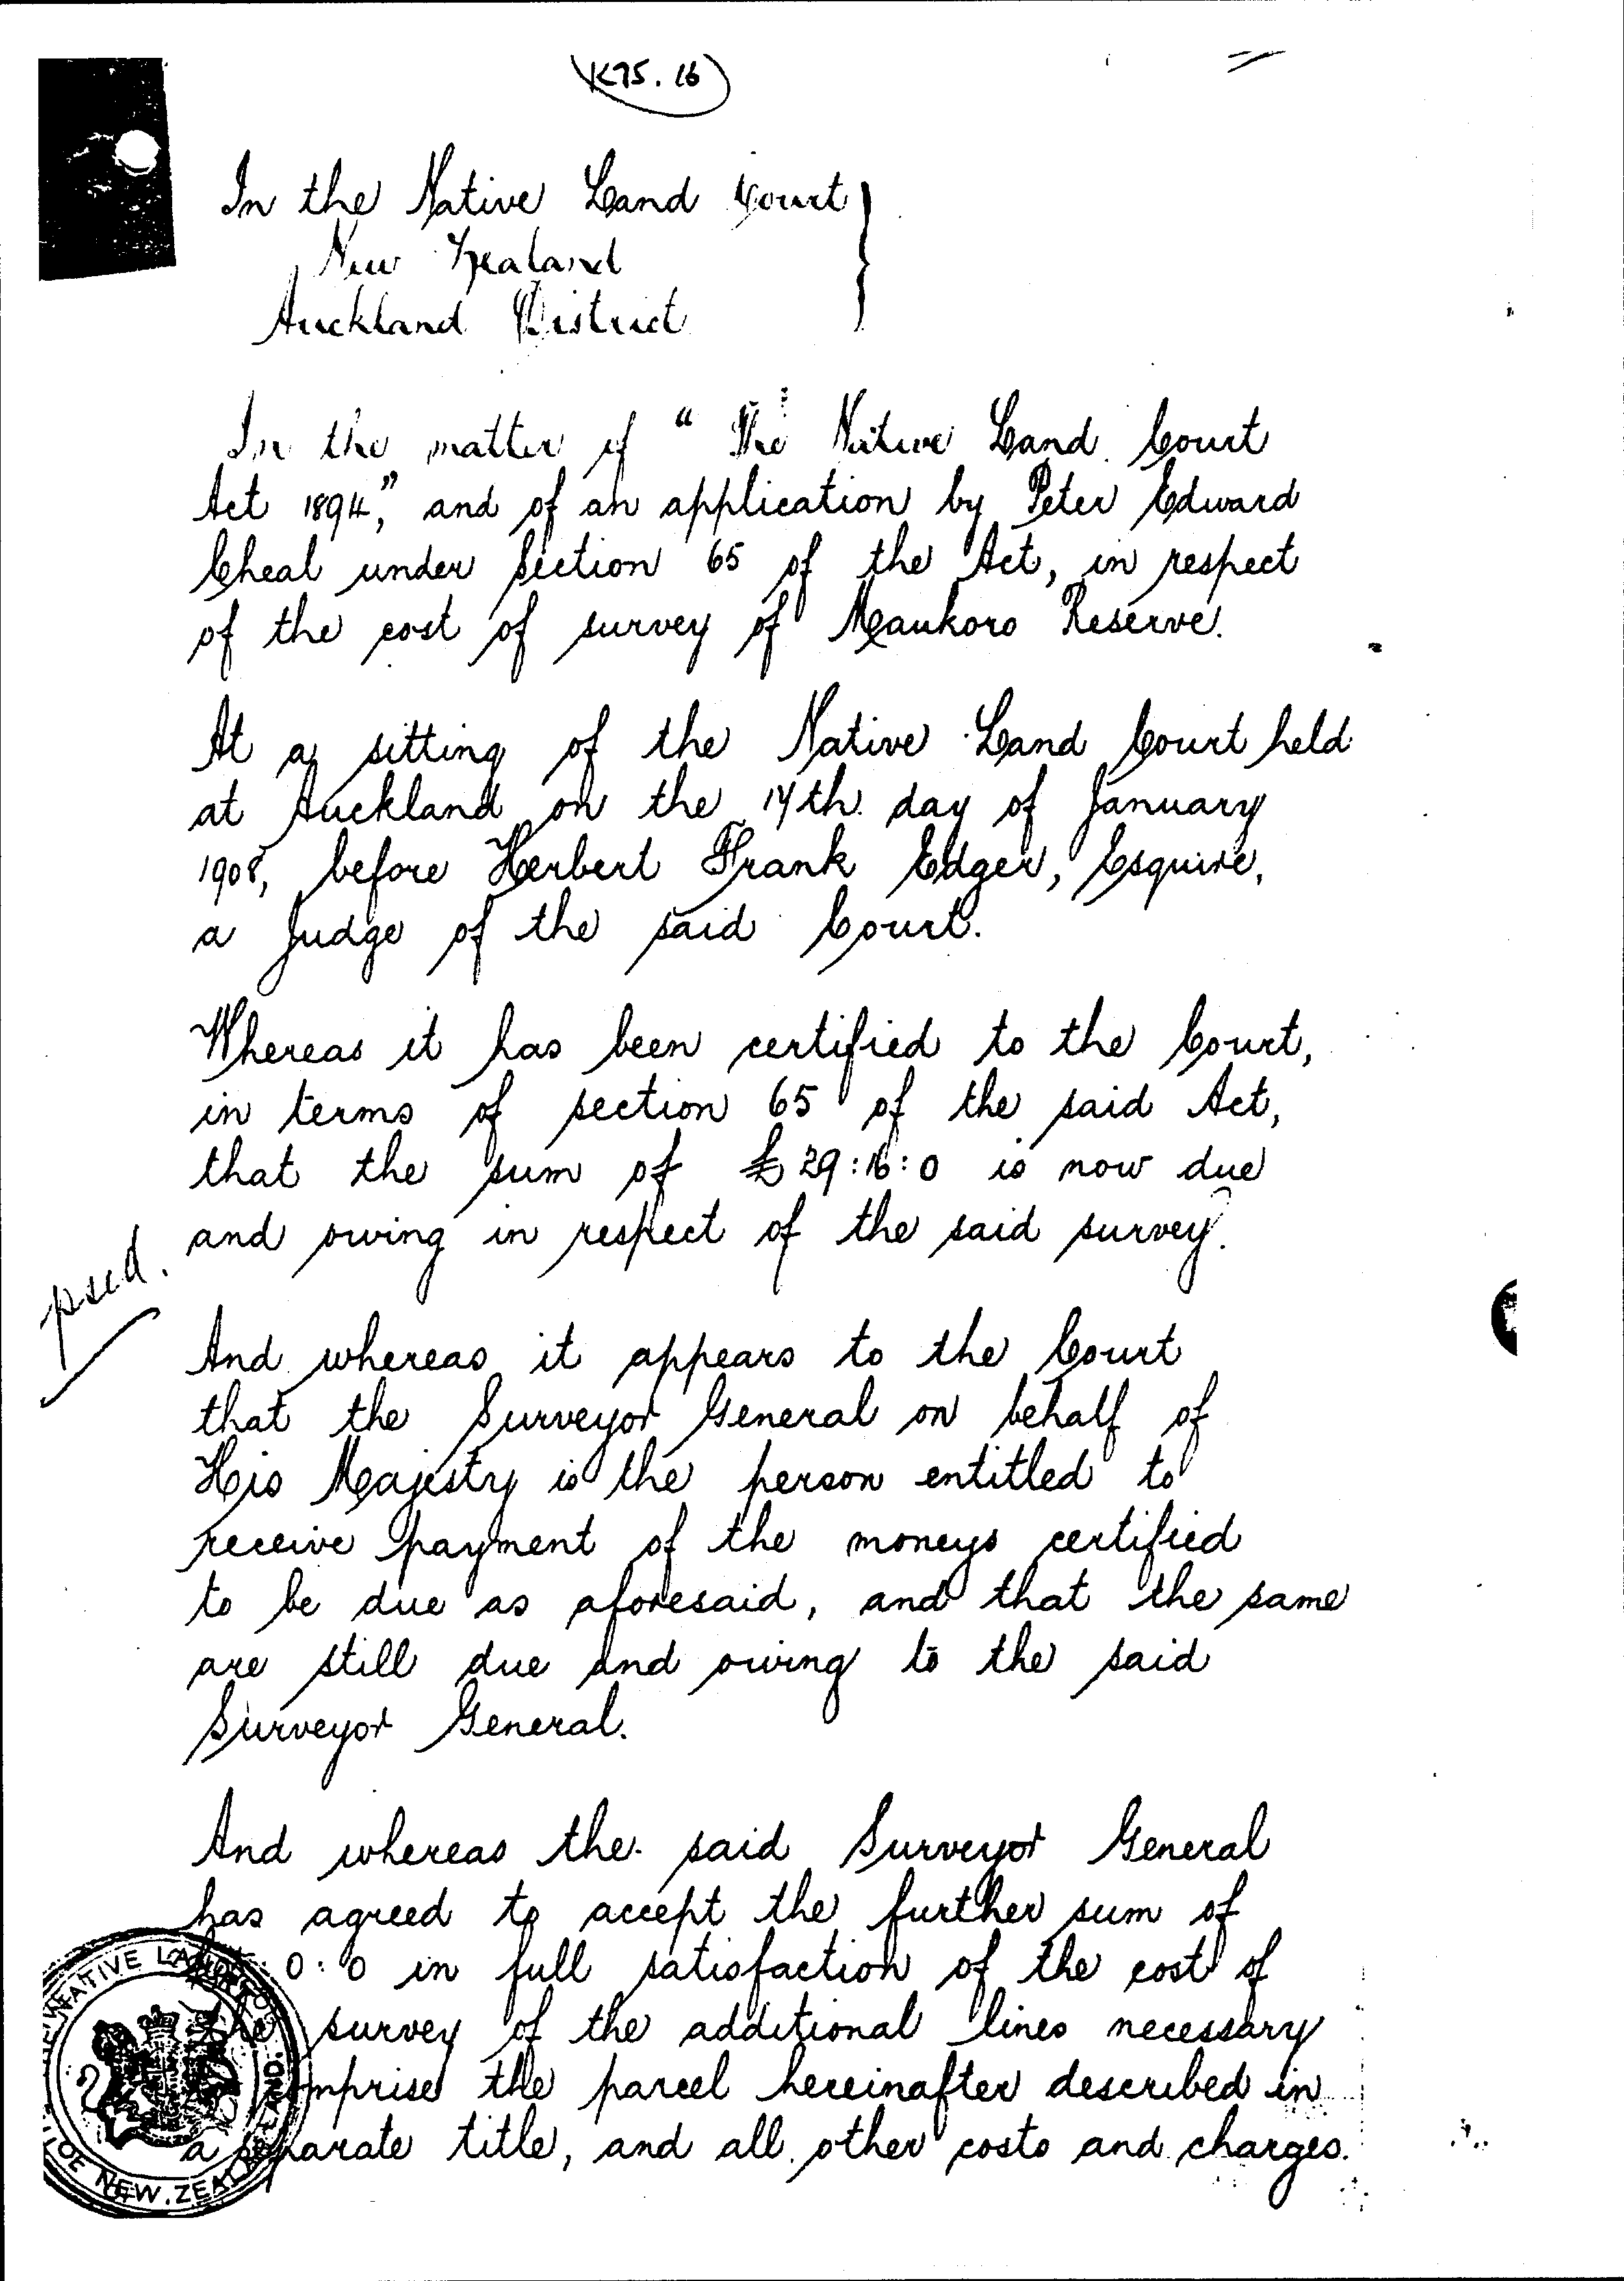 K75.16
In the Native Land Court
New Zealand
Auckland District
In the matter of "The Native Land Court
Act 1894," and of an application by Peter Edward
Cheal under section 65 of the Act, in respect
of the cost of survey of Maukoro Reserve.
At a sitting of the Native Land Court held
at Auckland on the 14th day of January
1908, before Herbert Frank Edger, Esquire,
a Judge of the said Court.
Whereas it has been certified to the Court,
in terms of section 65 of the said Act,
that the sum of £29:16:0 is now due
and owing in respect of the said survey.
psed.
And whereas it appears to the Court
that the Surveyor General on behalf of
His Majesty is the person entitled to
receive payment of the moneys certified
to be due as aforesaid, and that the same
are still due and owing to the said
Surveyor General.
And whereas the said Surveyor General
has agreed to accept the further sum of
0:0 in full satisfaction of the cost of
the survey of the additional lines necessary
comprise the parcel hereinafter described in
a separate title, and all other costs and charges.
NATIVE LAND
OF NEW ZEALAND